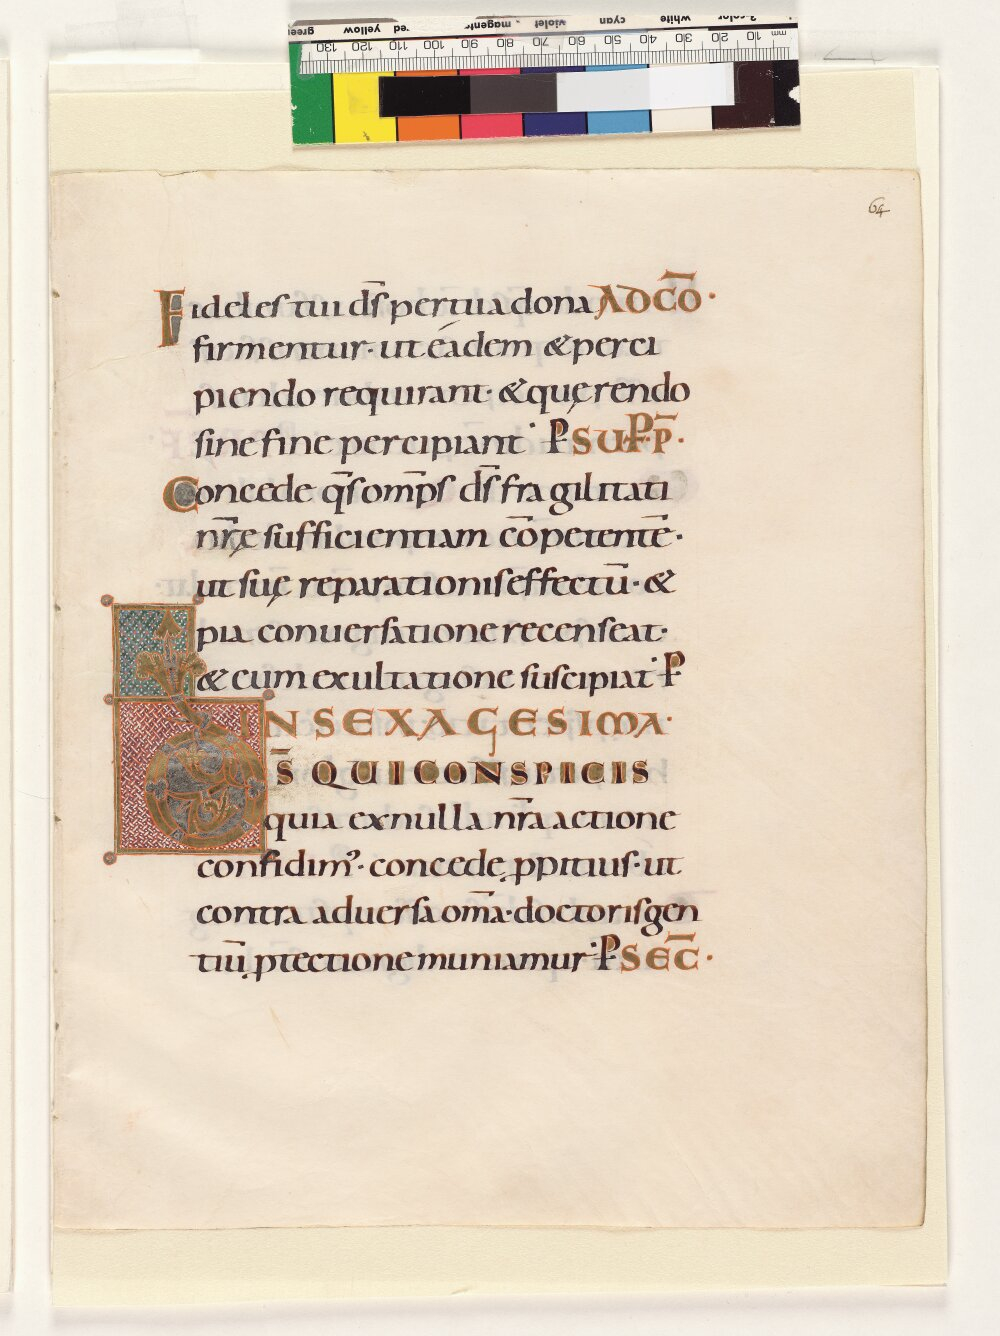 64
Fideles tui d̄s per tua dona AD CŌ·
firmentur· ut éadem & perci
piendo requirant· & quę rendo
sine fine percipiant· P SUPP̄·
Concede q̄s om̄ps d̄s fragilitati
nr̄ę sufficientiam cōpetentē·
ut suę reparationis effectū· &
pia conuersatione recenseat·
& cum exultatione suscipiat· P
IN SEXAGESIMA·
D S̄ QUI CONSPICIS
quia ex nulla nr̄a actione
confidim᾿· concede ppitius· ut
contra aduersa om̄a· doctoris gen
tiū ptectione muniamur· P SEC̄·
mm 10 20 30 40 50 60 70 80 90 100 110 120 130
3-color white cyan violet magenta red yellow green